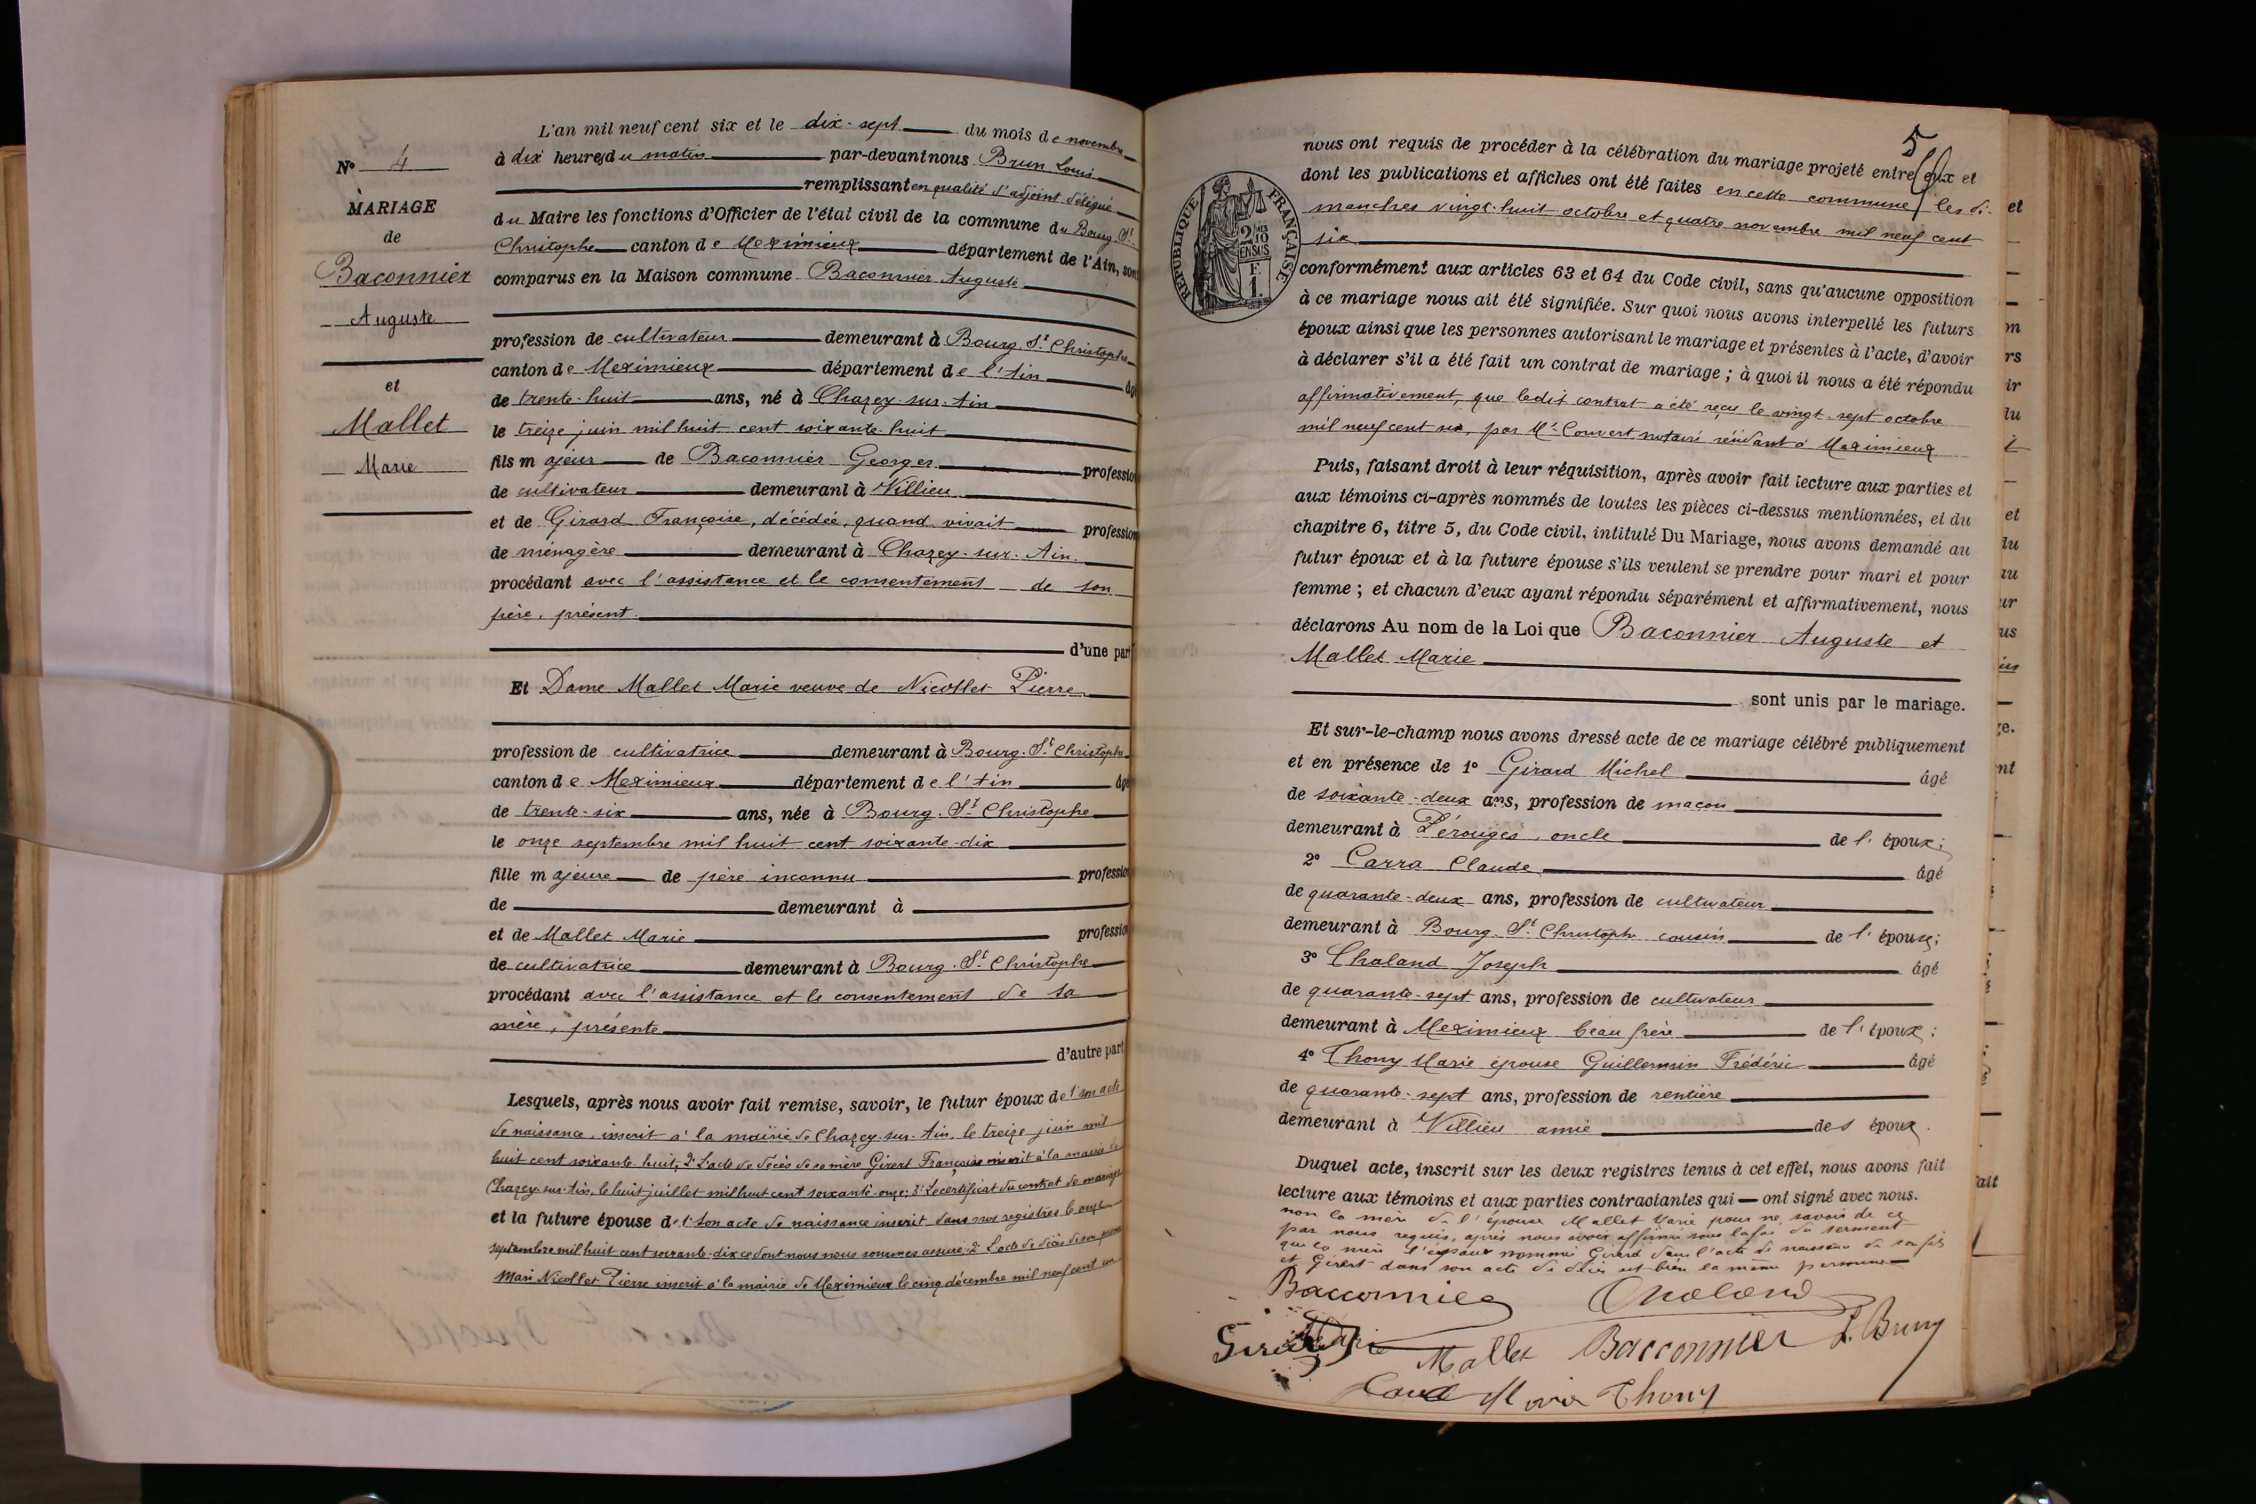 N° 4
MARIAGE
de
Baconnier
Auguste
et
Mallet
Marie
L'an mil neuf cent six et le dix-sept du mois de novembre
à dix heures du matin par-devant nous Brun Louis
remplissant en qualité d'adjoint délégué
du Maire les fonctions d'Officier de l'état civil de la commune du Bourg-St
Christophe canton de Meximieux département de l'Ain, sont
comparus en la Maison commune Baconnier Auguste
profession de cultivateur demeurant à Bourg-St Christophe
canton de Meximieux département de l'Ain âgé
de trente-huit ans, né à Chazey-sur-Ain
le treize juin mil huit cent soixante-huit
fils majeur de Baconnier Georges profession
de cultivateur demeurant à Villieu
et de Girard Françoise, décédée, quand vivait profession
de ménagère demeurant à Chazey-sur-Ain
procédant avec l'assistance et le consentement de son
père, présent.
d'une part
Et Dame Mallet Marie veuve de Nicollet Pierre
profession de cultivatrice demeurant à Bourg-St Christophe
canton de Meximieux département de l'Ain âgé
de trente-six ans, née à Bourg-St Christophe
le onze septembre mil huit cent soixante-dix
fille majeure de père inconnu profession
de demeurant à
et de Mallet Marie profession
de cultivatrice demeurant à Bourg-St Christophe
procédant avec l'assistance et le consentement de sa
mère, présente
d'autre part
Lesquels, après nous avoir fait remise, savoir, le futur époux de 1° son acte
de naissance inscrit à la mairie de Chazey-sur-Ain, le treize juin mil
huit cent soixante-huit; 2° L'acte de décès de sa mère Girert Françoise inscrit à la mairie de
Chazey-sur-Ain, le huit juillet mil huit cent soixante-onze; 3° Le certificat du contrat de mariage
et la future épouse de 1° Son acte de naissance inscrit dans nos registres le onze
septembre mil huit cent soixante-dix ce dont nous nous sommes assuré; 2° L'acte de décès de son premier
mari Nicollet Pierre inscrit à la mairie de Meximieux le cinq décembre mil neuf cent un
5
nous ont requis de procéder à la célébration du mariage projeté entre eux et
dont les publications et affiches ont été faites en cette commune les di-
manches vingt-huit octobre et quatre novembre mil neuf cent
six
RÉPUBLIQUE FRANÇAISE
2/10 EN SUS
F.
1.
conformément aux articles 63 et 64 du Code civil, sans qu'aucune opposition
à ce mariage nous ait été signifiée. Sur quoi nous avons interpellé les futurs
époux ainsi que les personnes autorisant le mariage et présentes à l'acte, d'avoir
à déclarer s'il a été fait un contrat de mariage; à quoi il nous a été répondu
affirmativement, que ledit contrat a été reçu le vingt-sept octobre
mil neuf cent six, par Me Convert notaire résidant à Meximieux
Puis, faisant droit à leur réquisition, après avoir fait lecture aux parties et
aux témoins ci-après nommés de toutes les pièces ci-dessus mentionnées, et du
chapitre 6, titre 5, du Code civil, intitulé Du Mariage, nous avons demandé au
futur époux et à la future épouse s'ils veulent se prendre pour mari et pour
femme; et chacun d'eux ayant répondu séparément et affirmativement, nous
déclarons Au nom de la Loi que Baconnier Auguste et
Mallet Marie
sont unis par le mariage.
Et sur-le-champ nous avons dressé acte de ce mariage célébré publiquement
et en présence de 1° Girard Michel âgé
de soixante-deux ans, profession de maçon
demeurant à Pérouges, oncle de l'époux;
2° Carra Claude âgé
de quarante-deux ans, profession de cultivateur
demeurant à Bourg-St Christophe cousin de l'épouse;
3° Chaland Joseph âgé
de quarante-sept ans, profession de cultivateur
demeurant à Meximieux beau frère de l'époux;
4° Thony Marie épouse Guillermin Frédéric âgé
de quarante-sept ans, profession de rentière
demeurant à Villieu amie des époux.
Duquel acte, inscrit sur les deux registres tenus à cet effet, nous avons fait
lecture aux témoins et aux parties contractantes qui ont signé avec nous.
non la mère de l'épouse Mallet Marie pour ne savoir de ce
par nous requis, après nous avoir affirmé sous la foi du serment
que la mère de l'époux nommé Girard dans l'acte de naissance de son fils
et Girert dans son acte de décès est bien la même personne
Bacconnier Chaland
Girard Marie Mallet Bacconnier L. Brun
Carra Maria Thony